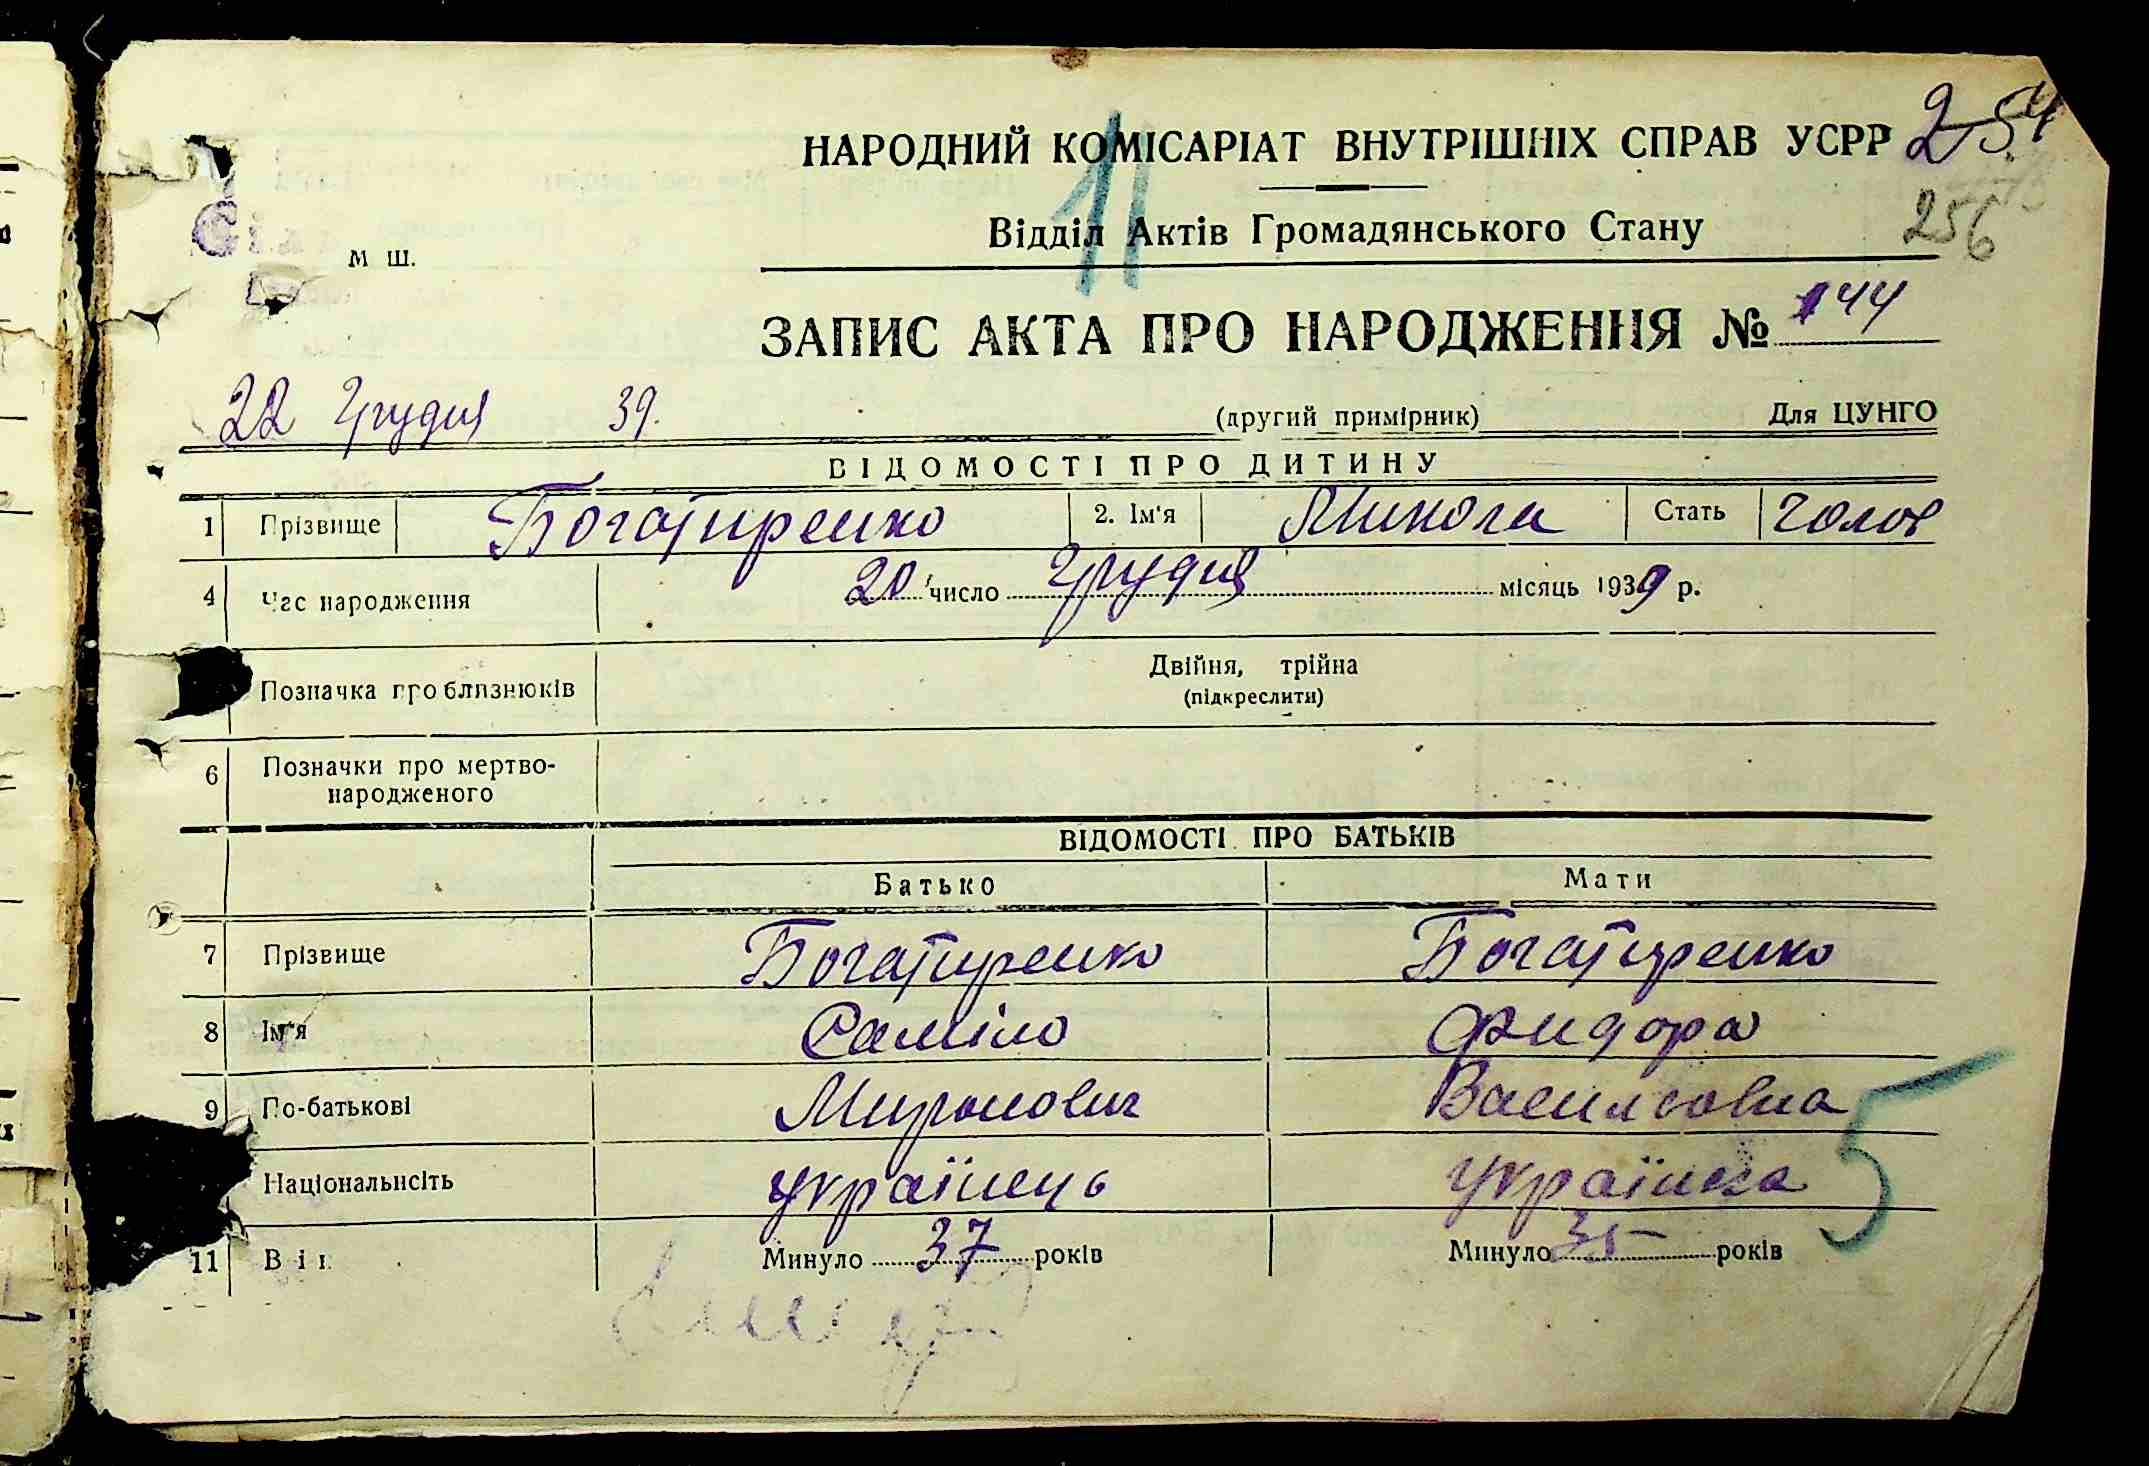 254
НАРОДНИЙ КОМІСАРІАТ ВНУТРІШНІХ СПРАВ УСРР
256
Відділ Актів Громадянського Стану
м ш.
11
ЗАПИС АКТА ПРО НАРОДЖЕННЯ № 144
22 Грудня 39.
(другий примірник) Для ЦУНГО
ВІДОМОСТІ ПРО ДИТИНУ
1 Прізвище Богатиренко 2. Ім'я Микола Стать Голов
4 Час народження 20 число Грудня місяць 1939 р.
Позначка про близнюків Двійня, трійна
(підкреслити)
6 Позначки про мертво-
народженого
ВІДОМОСТІ ПРО БАТЬКІВ
Батько Мати
7 Прізвище Богатиренко Богатиренко
8 Ім'я Саміло Фидора
9 По-батькові Миронович Василовна
Національнсіть українець українка
5
11 Вік Минуло 37 років Минуло 35 років